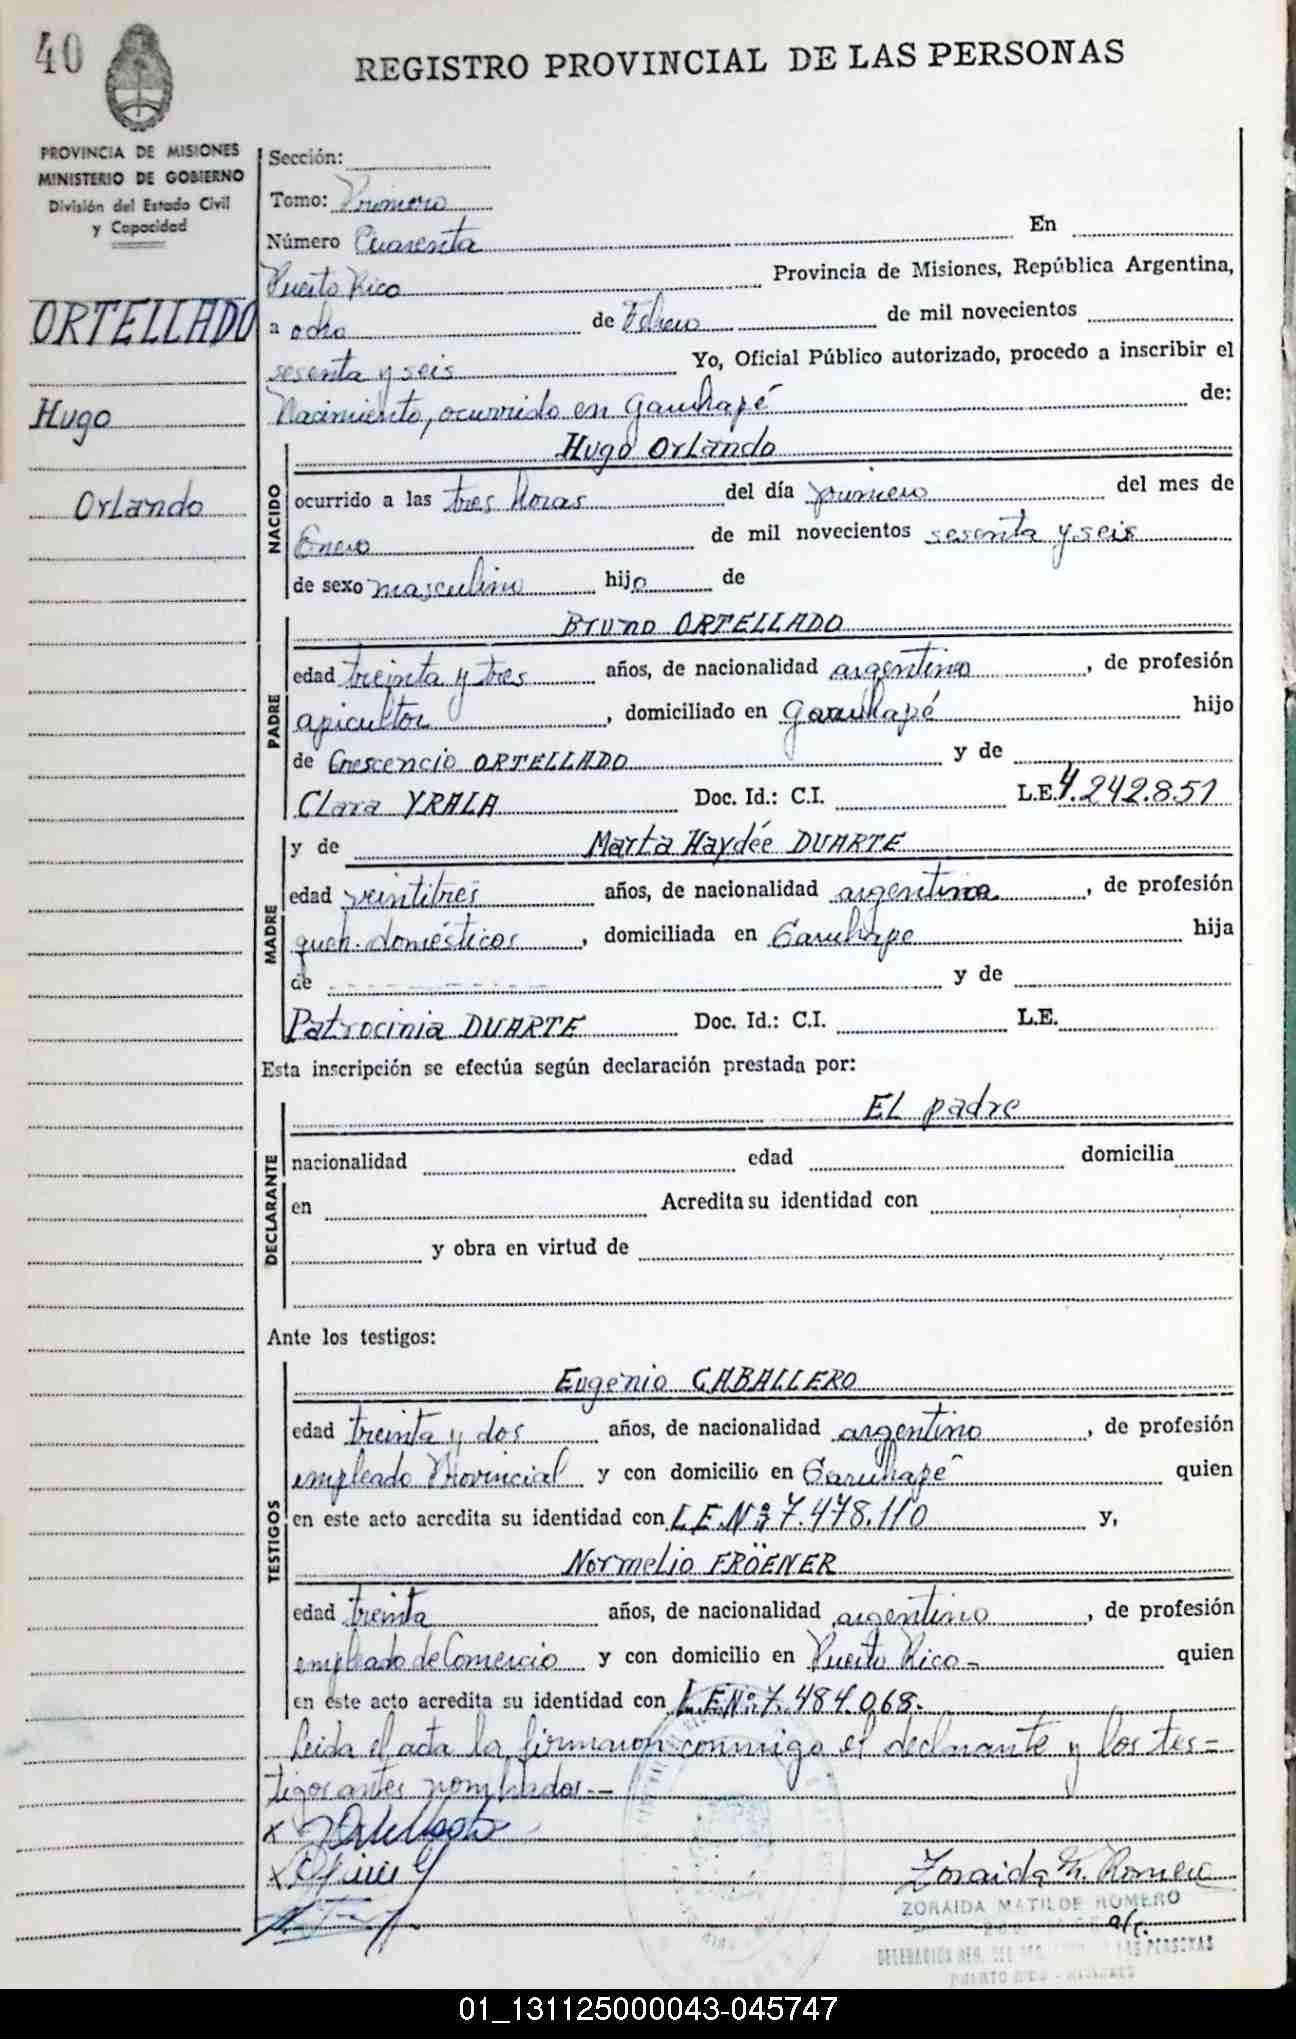 40
REGISTRO PROVINCIAL DE LAS PERSONAS
PROVINCIA DE MISIONES
MINISTERIO DE GOBIERNO
División del Estado Civil
y Capacidad
ORTELLADO
Hugo
Orlando
Sección:
Tomo: Primero
Número Cuarenta En
Puerto Rico Provincia de Misiones, República Argentina,
a ocho de Febrero de mil novecientos
sesenta y seis Yo, Oficial Público autorizado, procedo a inscribir el
Nacimiento, ocurrido en Garuhapé de:
NACIDO
Hugo Orlando
ocurrido a las tres horas del día primero del mes de
Enero de mil novecientos sesenta y seis
de sexo masculino hijo de
PADRE
Bruno ORTELLADO
edad treinta y tres años, de nacionalidad argentino, de profesión
apicultor, domiciliado en Garuhapé hijo
de Crescencio ORTELLADO y de
Clara YRALA Doc. Id.: C.I. L.E. 4.242.851
MADRE
y de Marta Haydée DUARTE
edad veintitres años, de nacionalidad argentina, de profesión
queh. domésticos, domiciliada en Garuhape hija
de y de
Patrocinia DUARTE Doc. Id.: C.I. L.E.
Esta inscripción se efectúa según declaración prestada por:
DECLARANTE
El padre
nacionalidad edad domicilia
en Acredita su identidad con
y obra en virtud de
Ante los testigos:
TESTIGOS
Eugenio CABALLERO
edad treinta y dos años, de nacionalidad argentino, de profesión
empleado Provincial y con domicilio en Garuhapé quien
en este acto acredita su identidad con L.E.Nº 7.478.110 y,
Normelio FRÖENER
edad treinta años, de nacionalidad argentino, de profesión
empleado de Comercio y con domicilio en Puerto Rico- quien
en este acto acredita su identidad con L.E.Nº 7.484.068.
Leida el acta la firmaron conmigo el declarante y los tes-
tigos antes nombrados.--
Zoraida M. Romero
ZORAIDA MATILDE ROMERO
a/c.
DELEGACION REG. DEL LAS PERSONAS
PUERTO RICO - MISIONES
01_131125000043-045747